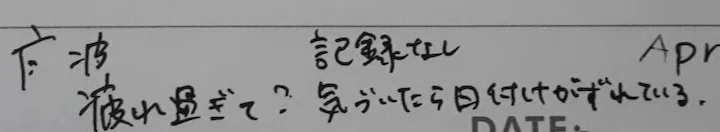 記録なし Apr
疲れ過ぎて?気づいたら日付けがずれている.
DATE: